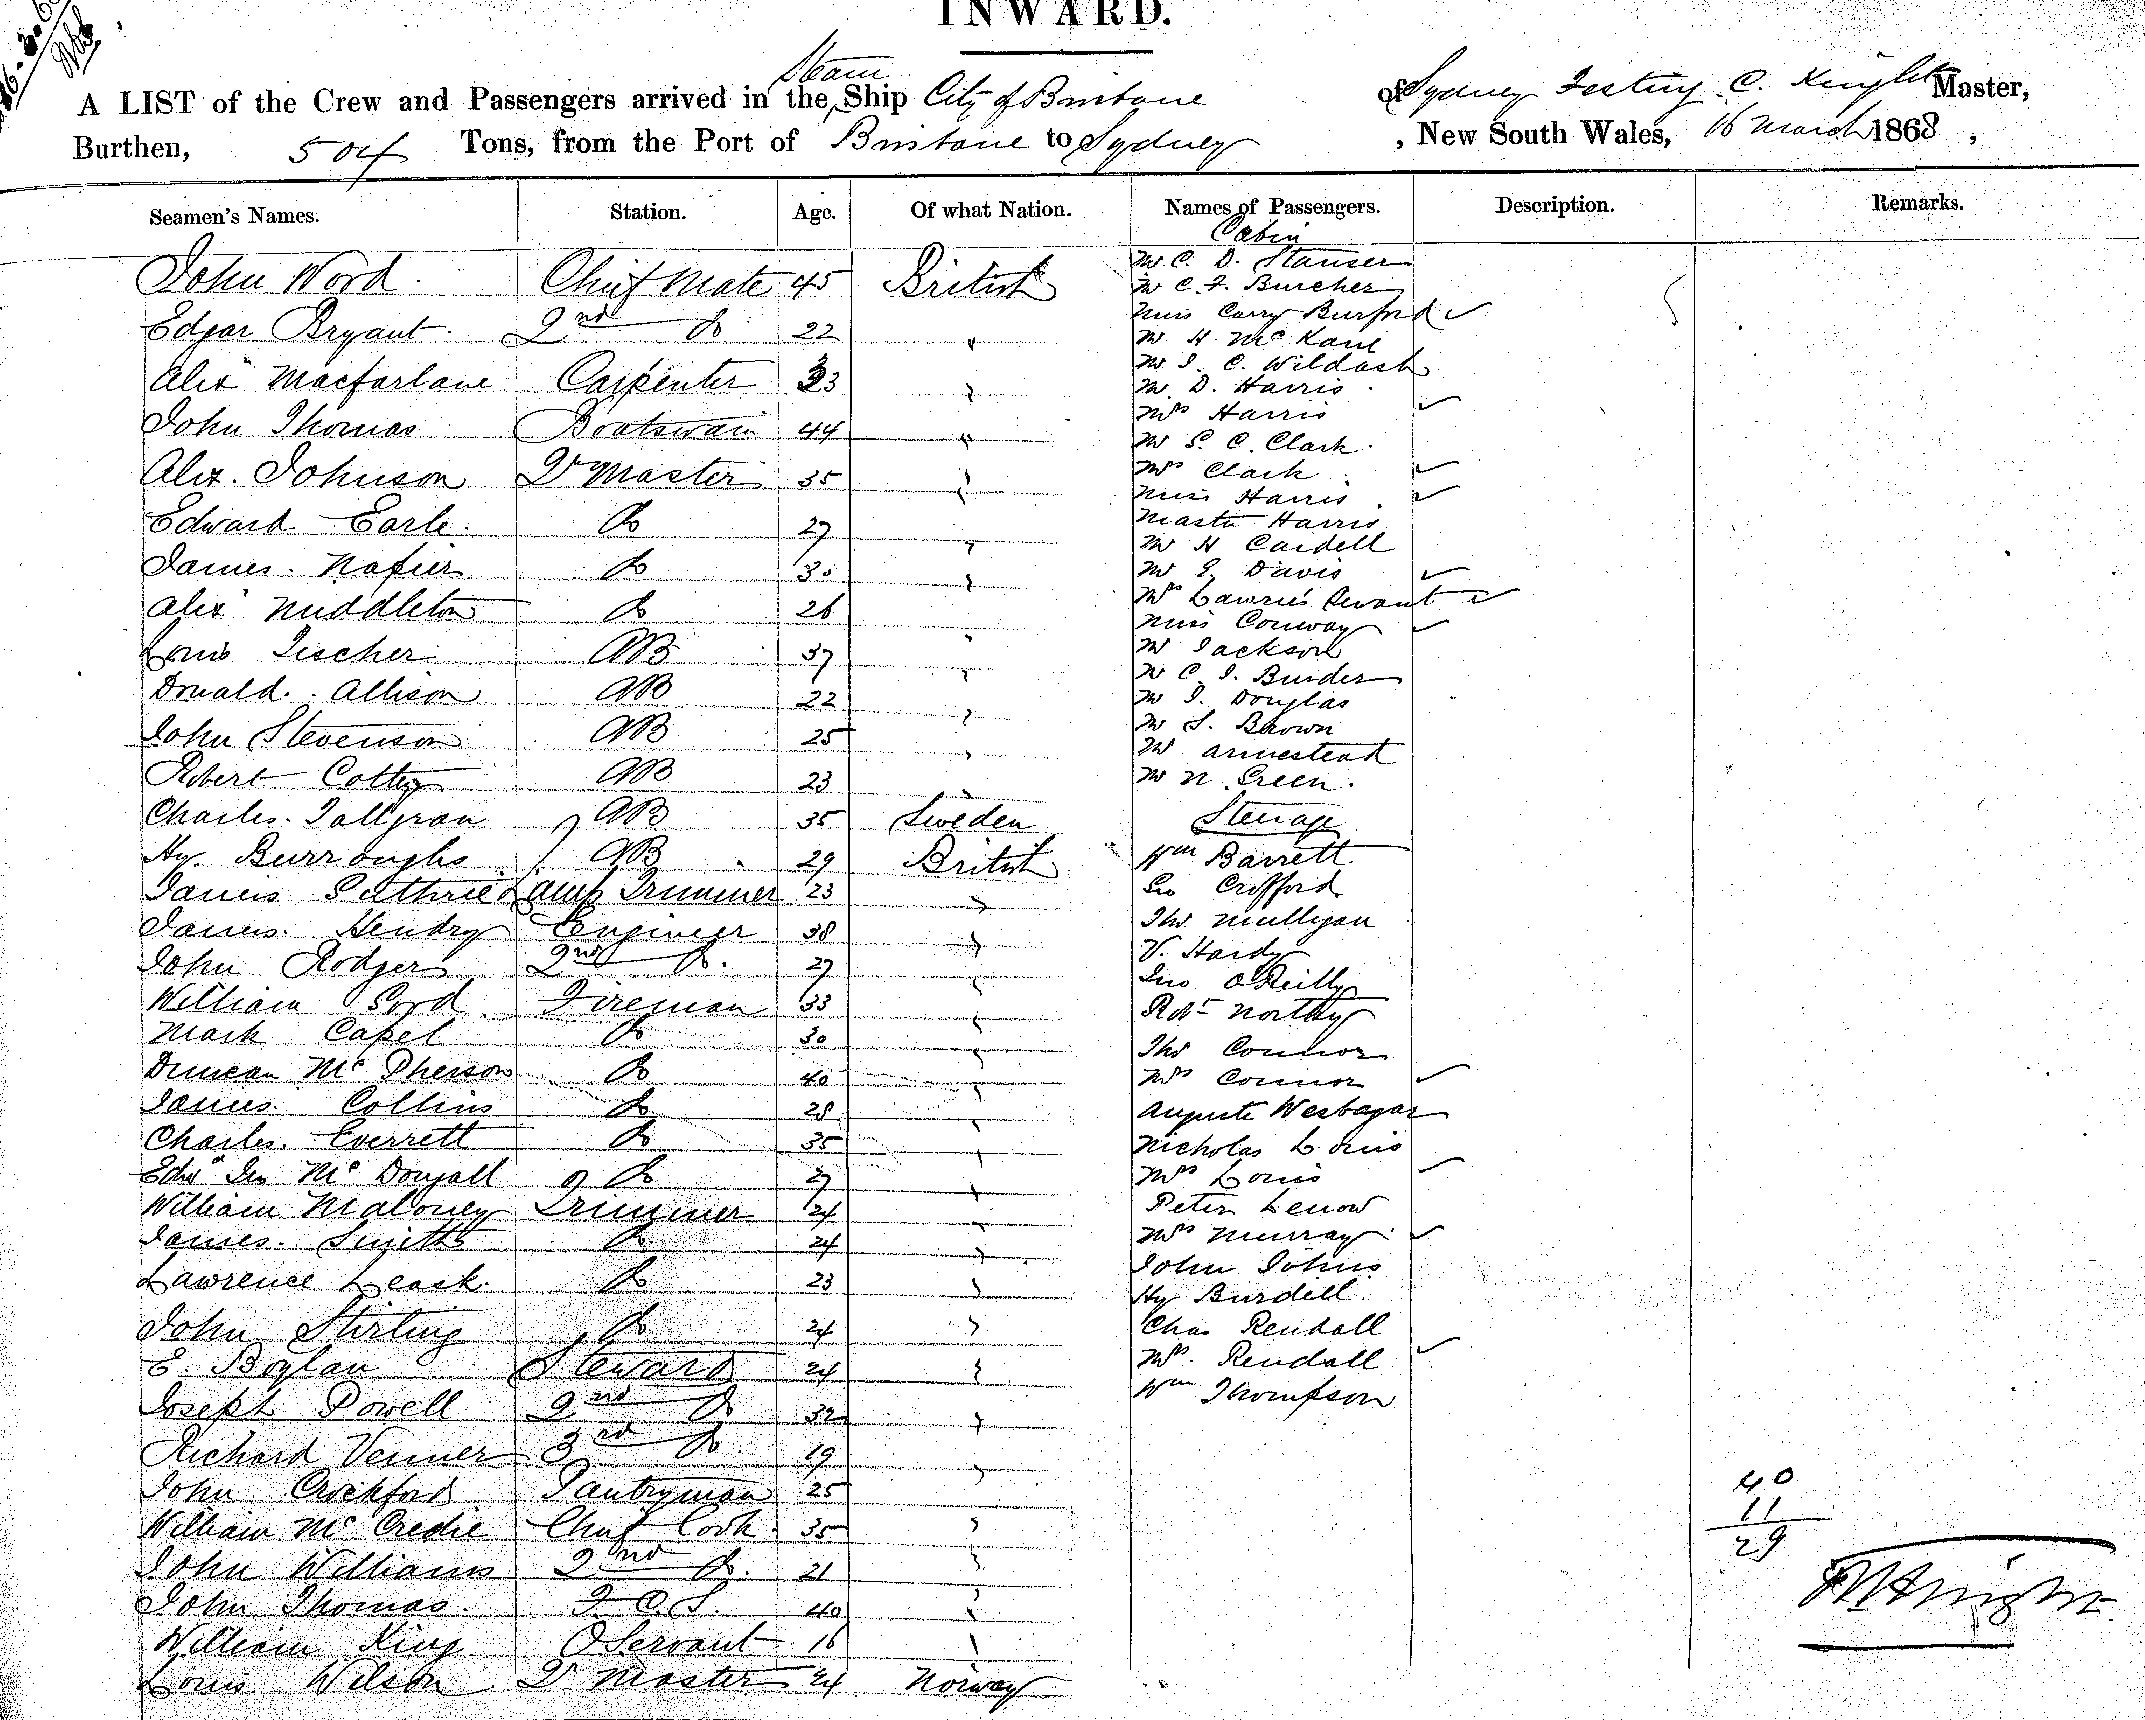 INWARD.
A LIST of the Crew and Passengers arrived in the Steam Ship City of Brisbane of Sydney Festing C. Knight Master,
Burthen, 504 Tons, from the Port of Brisbane to Sydney, New South Wales, 16 March 1868,
Seamen's Names. Station. Age. Of what Nation. Names of Passengers. Description. Remarks.
Cabin
John Wood Chief Mate 45 British
Edgar Bryant 2nd Do 22 "
Alexr Macfarlane Carpenter 33 "
John Thomas Boatswain 44 "
Alex. Johnson Qr Master 35 "
Edward Earle Do 27 "
James Napier Do 30 "
Alexr Middleton Do 26 "
Louis Fischer AB 37 "
Donald Allison AB 22 "
John Stevenson AB 25 "
Robert Cotty AB 23 "
Charles Tallgran AB 35 Sweden
Hy. Burroughs AB 29 British
James Guthrie Lamp Trimmer 23 "
James Hendry Engineer 38 "
John Rodgers 2nd Do. 27 "
William Ford Fireman 33 "
Mark Capel Do 30 "
Duncan McPherson Do 40 "
James Collins Do 28 "
Charles Everrett Do 35 "
Edwd Jno McDougall Do 27 "
William Maloney Trimmer 24 "
James Smith Do 24 "
Lawrence Leask Do 23 "
John Stirling Do 24 "
E. Boylan Steward 24 "
Joseph Powell 2nd Do 32 "
Richard Venner 3rd Do 19 "
John Crockford Pantryman 25
William McCredie Chief Cook 35 "
John Williams 2nd Do. 21 "
John Thomas F.C.S. 40 "
William King O Servant 16 "
Louis Wilson Qr Master 24 Norway
Mr C. D. Stanser
Mr C. F. Burcher
Miss Carry Burford ✓
Mr H. McKane
Mr J. C. Wildash
Mr D. Harris
Mrs Harris ✓
Mr S. C. Clark
Mrs Clark ✓
Miss Harris ✓
Master Harris
Mr H Cardell
Mr E. Davis ✓
Mrs Lawrie's Servant ✓
Miss Conway ✓
Mr Jackson
Mr C. J. Burder
Mr J. Douglas
Mr S. Brown
Mr Armestead
Mr N. Green.
Steerage
Wm Barrett
Geo Crofford
Thos Mulligan
V. Hardy
Jno O'Reilly
Robt Northy
Thos Connor
Mrs Connor ✓
Auguste Wesbagar
Nicholas Louis
Mrs Louis ✓
Peter Lenow
Mrs Murray ✓
John Johns
Hy Burdell
Chas Rendall
Mrs. Rendall ✓
Wm Thompson
40
11
29